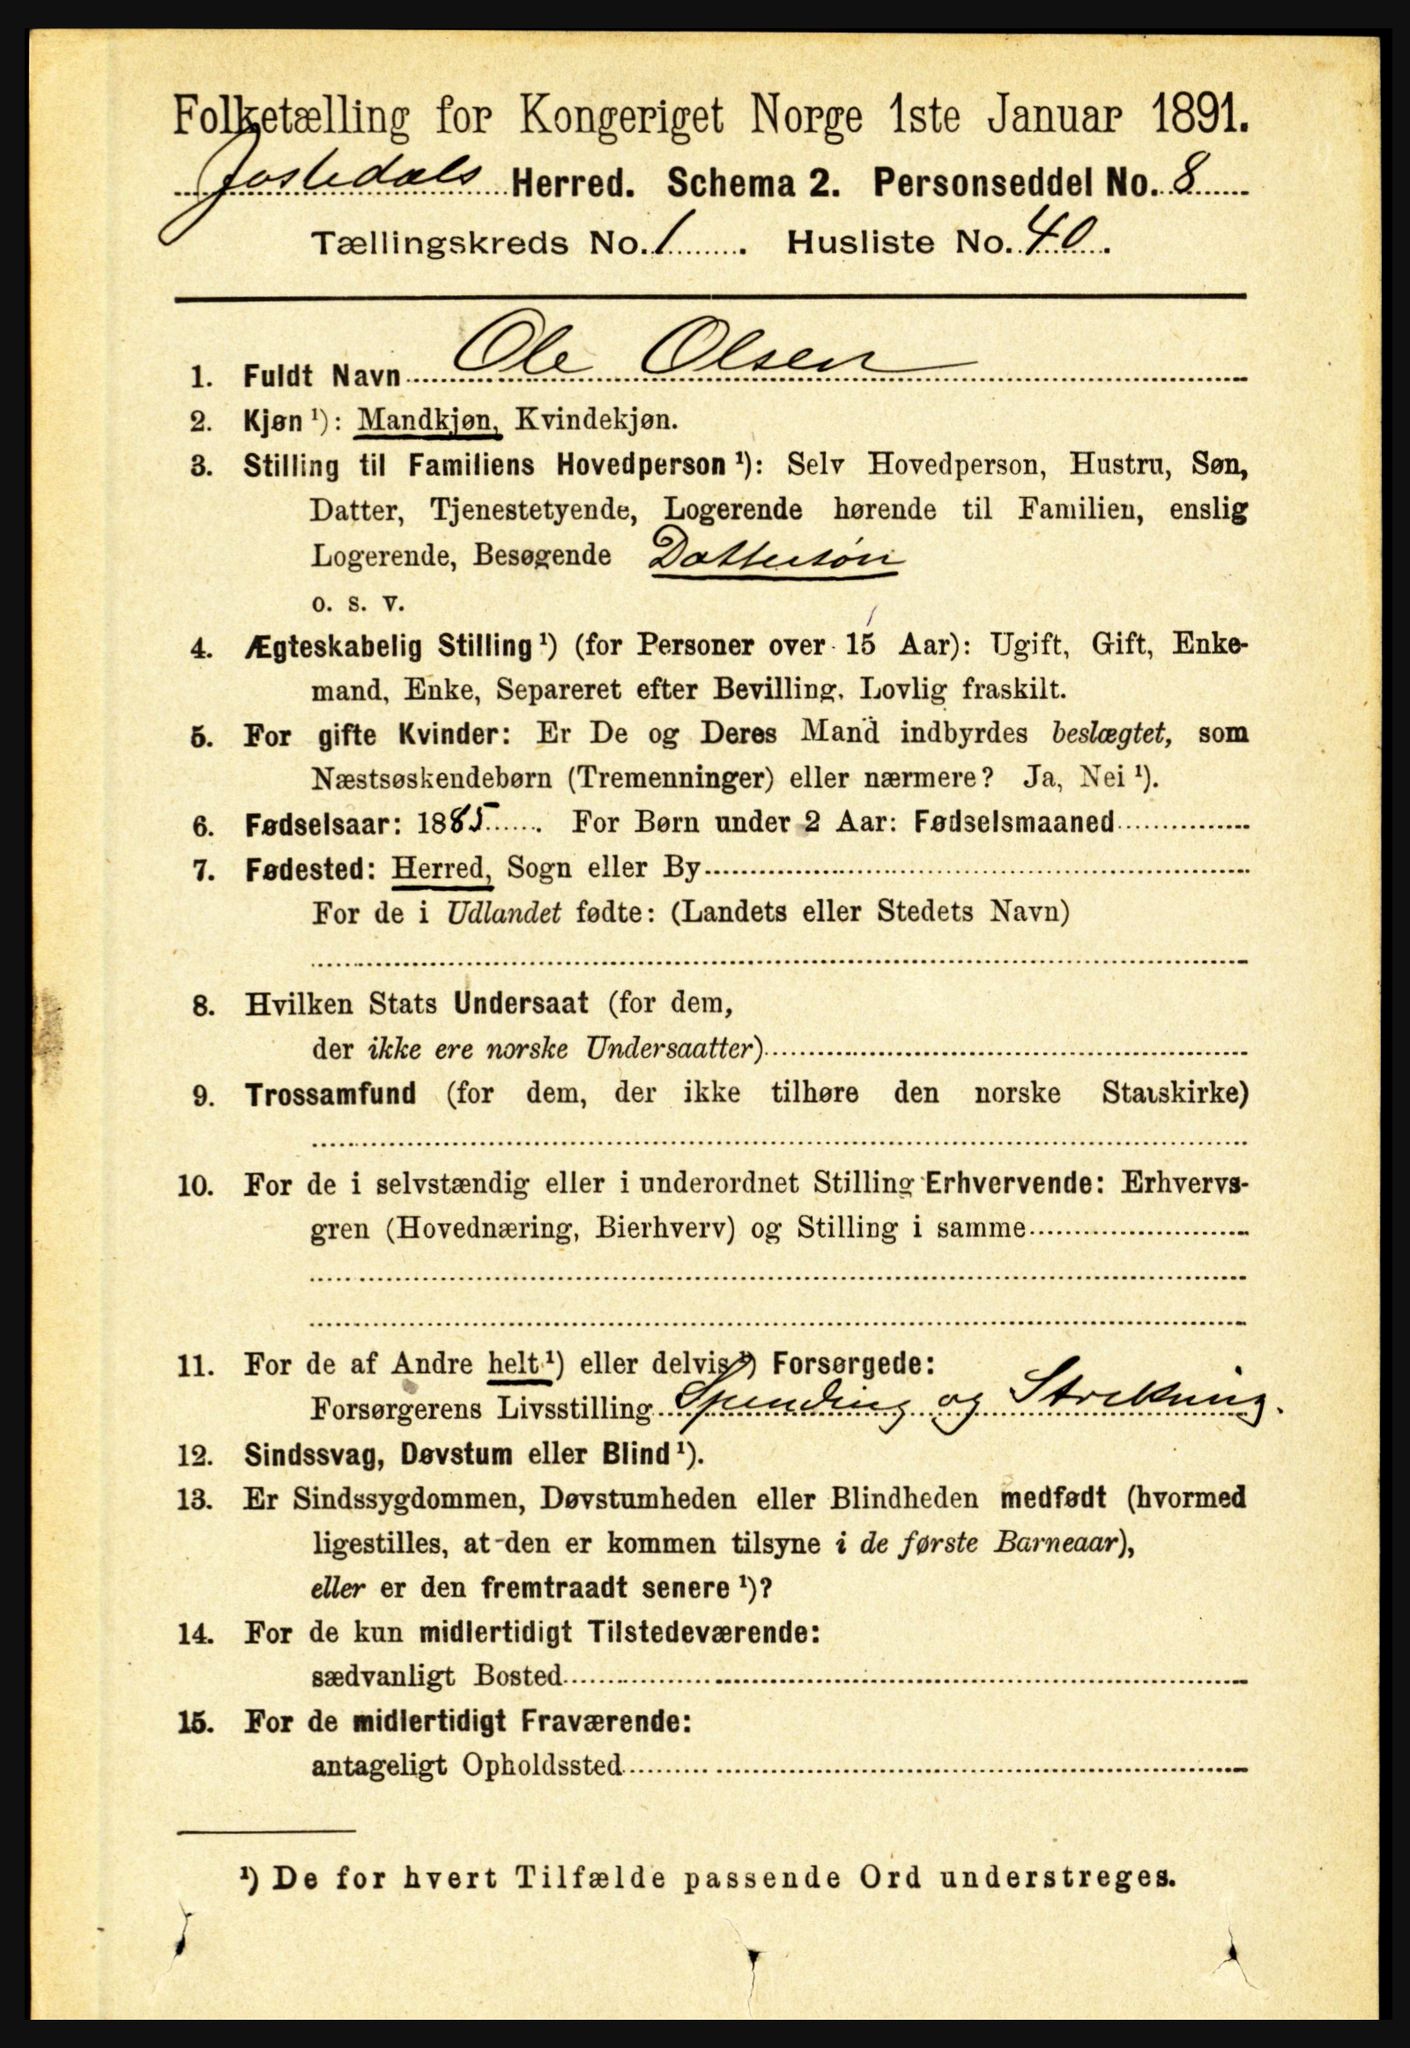 Folketælling for Kongeriget Norge 1ste Januar 1891.
Jostedals Herred. Schema 2. Personseddel No. 8
Tællingskreds No. 1. Husliste No. 40.
1. Fuldt Navn Ole Olsen
2. Kjøn ¹): Mandkjøn, Kvindekjøn.
3. Stilling til Familiens Hovedperson ¹): Selv Hovedperson, Hustru, Søn,
Datter, Tjenestetyende, Logerende hørende til Familien, enslig
Logerende, Besøgende Dattersøn
o. s. v.
4. Ægteskabelig Stilling ¹) (for Personer over 15 Aar): Ugift, Gift, Enke-
mand, Enke, Separeret efter Bevilling. Lovlig fraskilt.
5. For gifte Kvinder: Er De og Deres Mand indbyrdes beslægtet, som
Næstsøskendebørn (Tremenninger) eller nærmere? Ja, Nei ¹).
6. Fødselsaar: 1885. For Børn under 2 Aar: Fødselsmaaned
7. Fødested: Herred, Sogn eller By
For de i Udlandet fødte: (Landets eller Stedets Navn)
8. Hvilken Stats Undersaat (for dem,
der ikke ere norske Undersaatter)
9. Trossamfund (for dem, der ikke tilhøre den norske Statskirke)
10. For de i selvstændig eller i underordnet Stilling Erhvervende: Erhvervs-
gren (Hovednæring, Bierhverv) og Stilling i samme
11. For de af Andre helt ¹) eller delvis ¹) Forsørgede:
Forsørgerens Livsstilling Spinding og Strikning.
12. Sindssvag, Døvstum eller Blind ¹).
13. Er Sindssygdommen, Døvstumheden eller Blindheden medfødt (hvormed
ligestilles, at den er kommen tilsyne i de første Barneaar),
eller er den fremtraadt senere ¹)?
14. For de kun midlertidigt Tilstedeværende:
sædvanligt Bosted
15. For de midlertidigt Fraværende:
antageligt Opholdssted
¹) De for hvert Tilfælde passende Ord understreges.